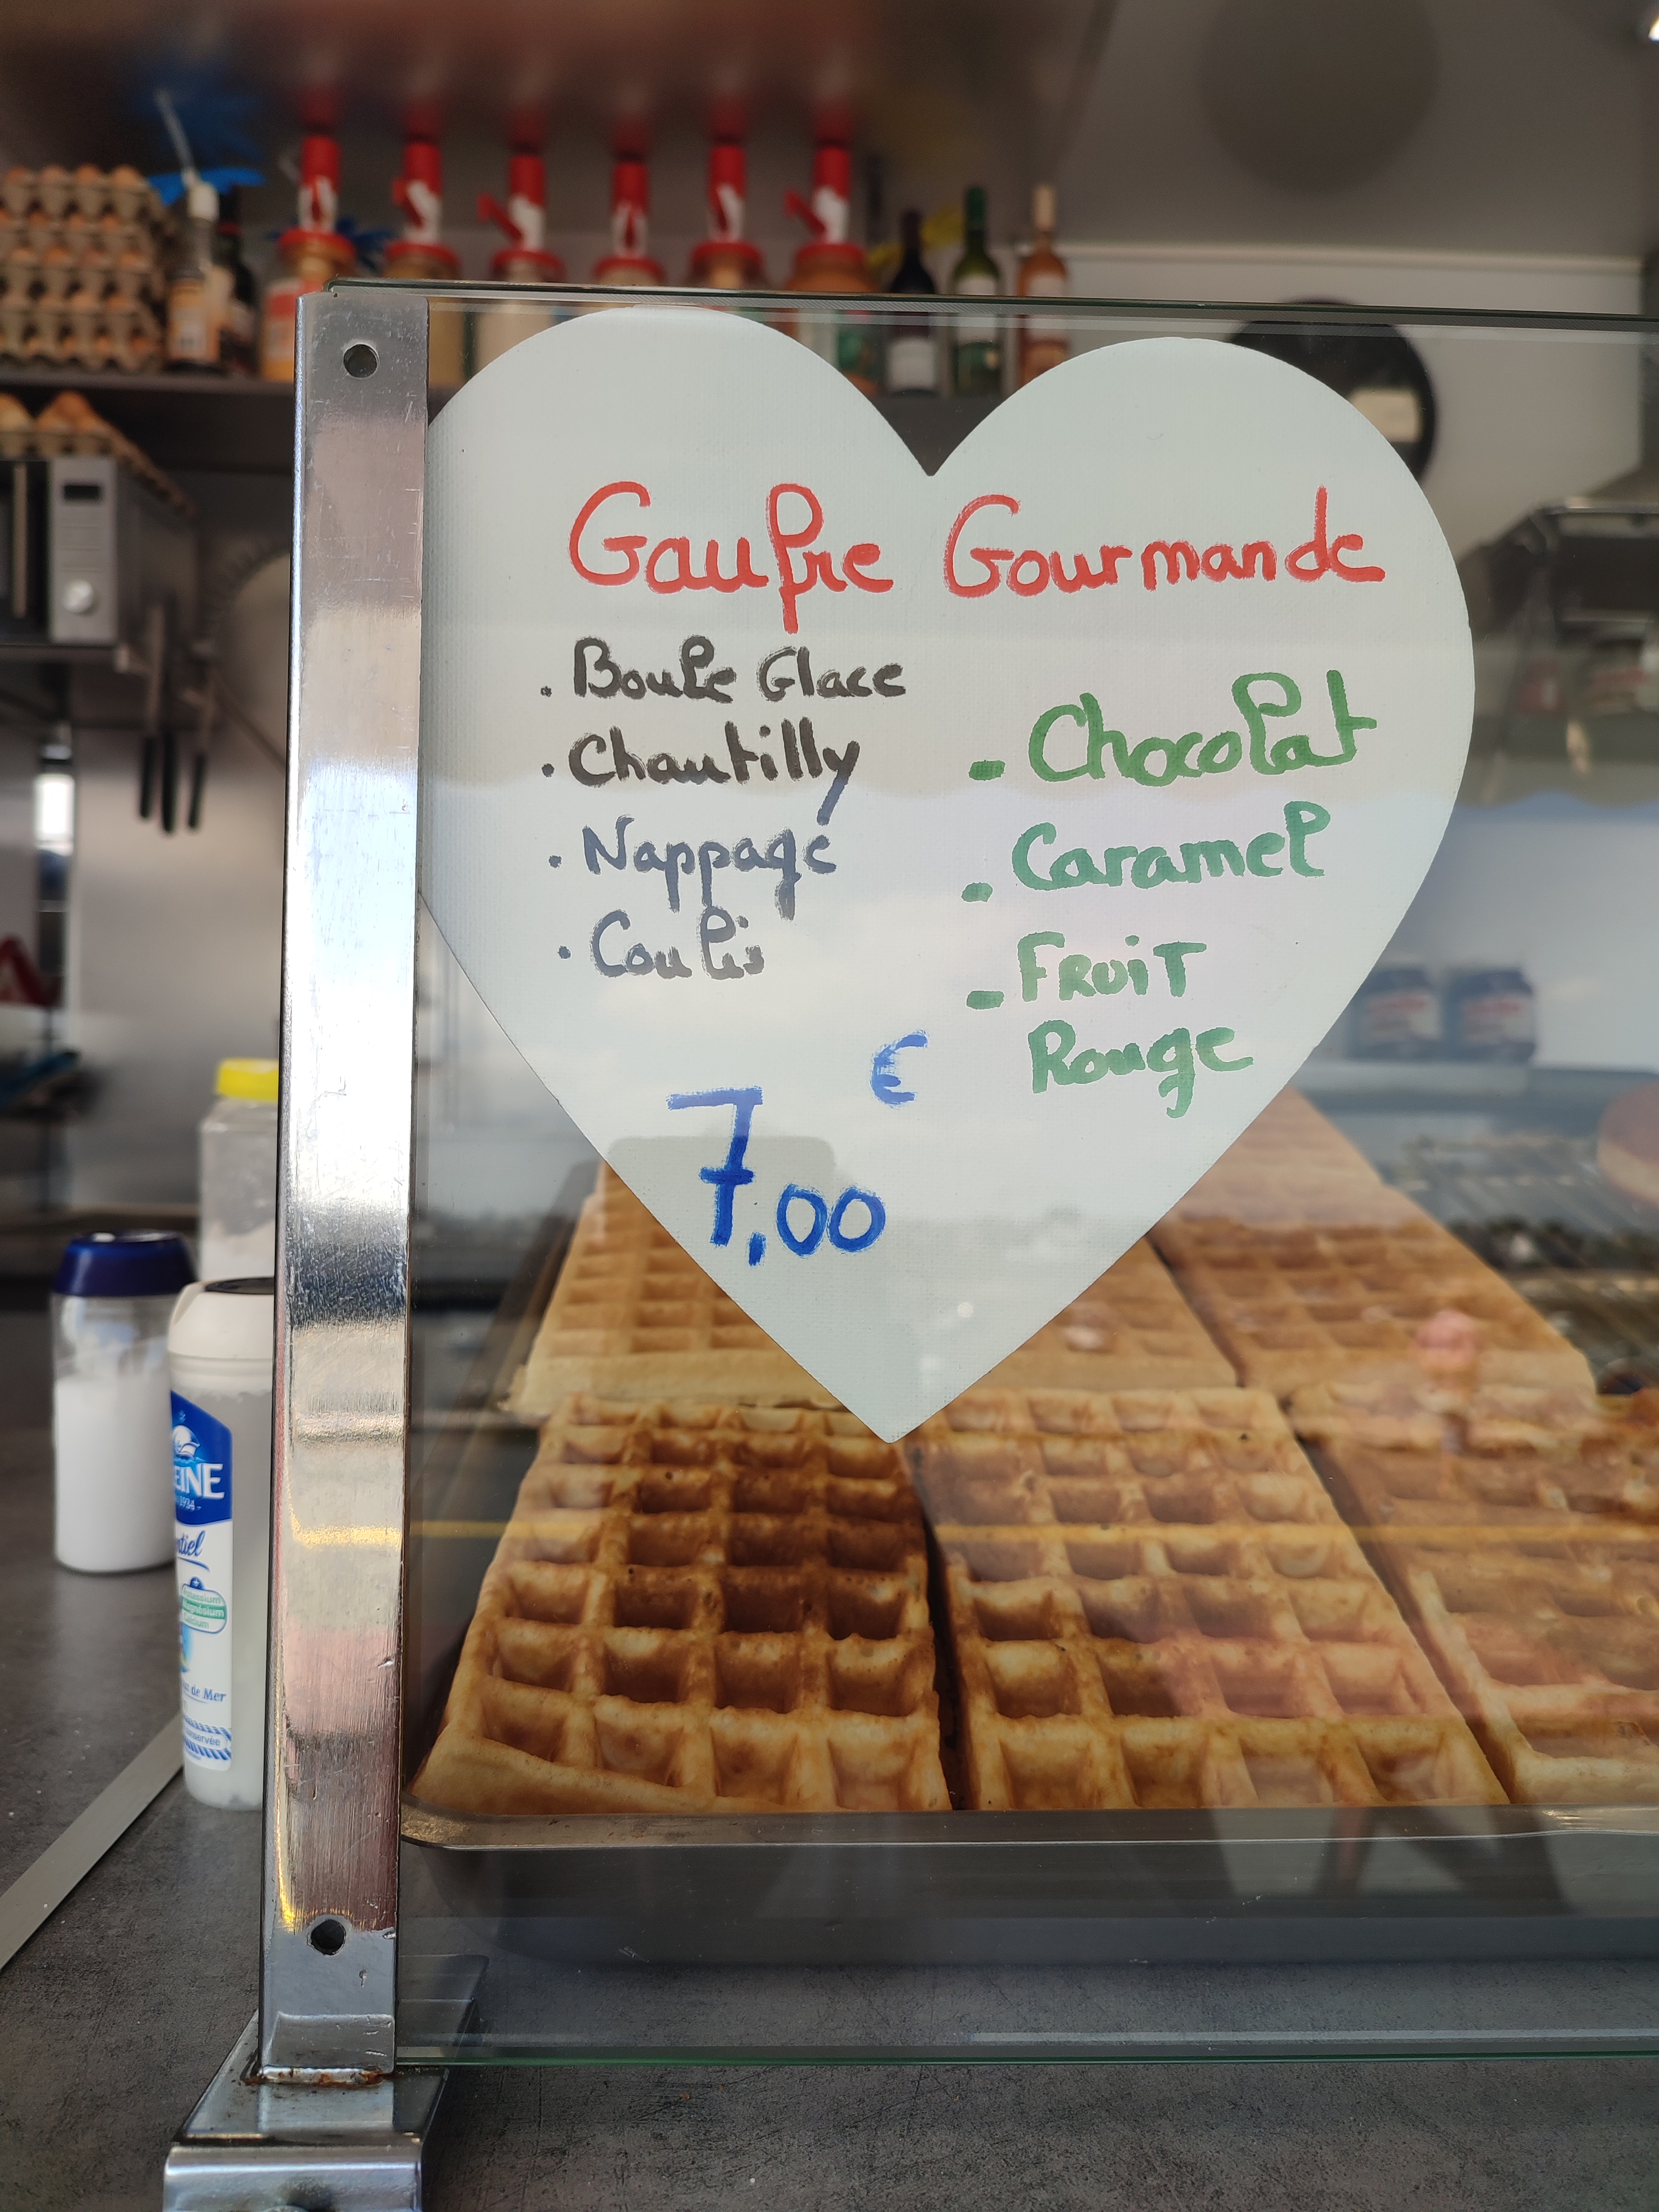 Gaufre Gourmande
. Boule Glace
. Chantilly
. Nappage
. Coulis
- Chocolat
- Caramel
- FRUIT
Rouge
€
7,00
EINE
1934 -
tiel
Magnésium
de Mer